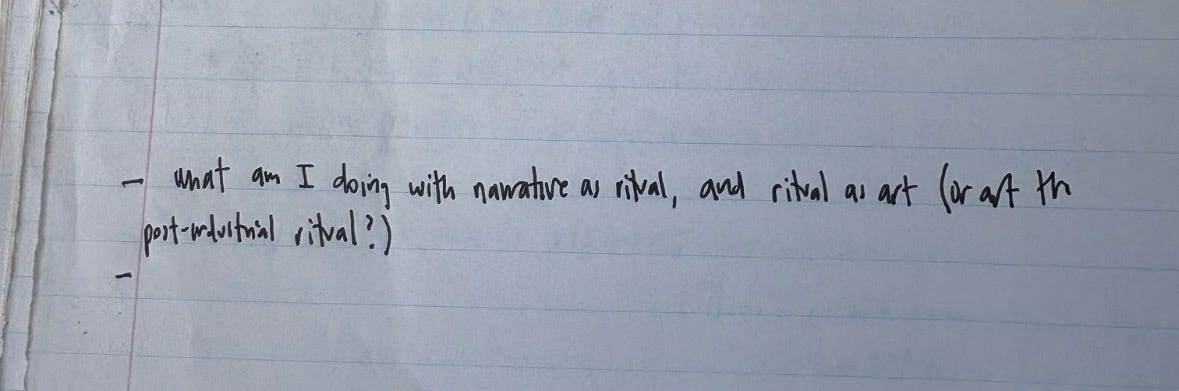 - what am I doing with narrative as ritual, and ritual as art (or art th
post-industrial ritual?)
-